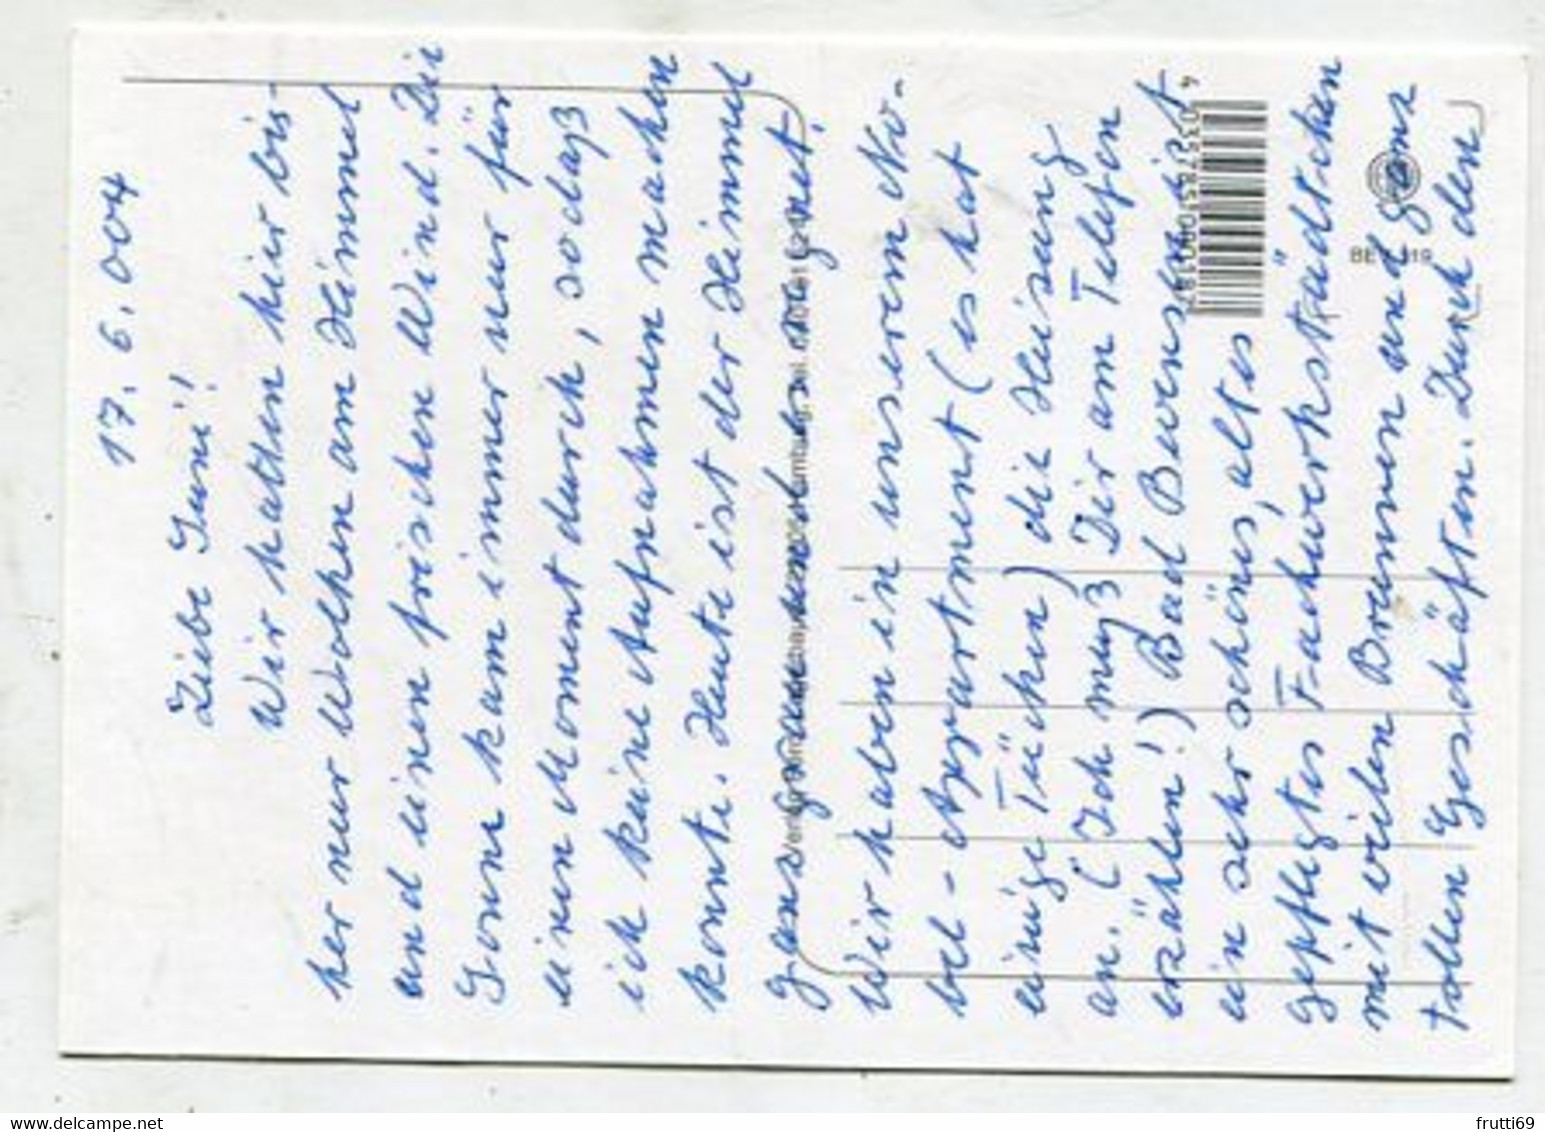 17. 6. 004
Liebe Susi!
Wir hatten hier bis-
her nur Wolken am Himmel
und einen frischen Wind. Die
Sonne kam immer nur für
einen Moment durch, sodaß
ich keine Aufnahmen machen
konnte. Heute ist der Himmel
ganz grau und es regnet.
Wir haben in unserem No-
bel-Appartment (es hat
einige Tücken) die Heizung
an. (Ich muß Dir am Telefon
erzählen!) Bad Bevensen ist
ein sehr schönes, altes
gepflegtes Fachwerkstädtchen
mit vielen Brunnen und ganz
tollen Geschäften. Durch den
BEV
frutti69